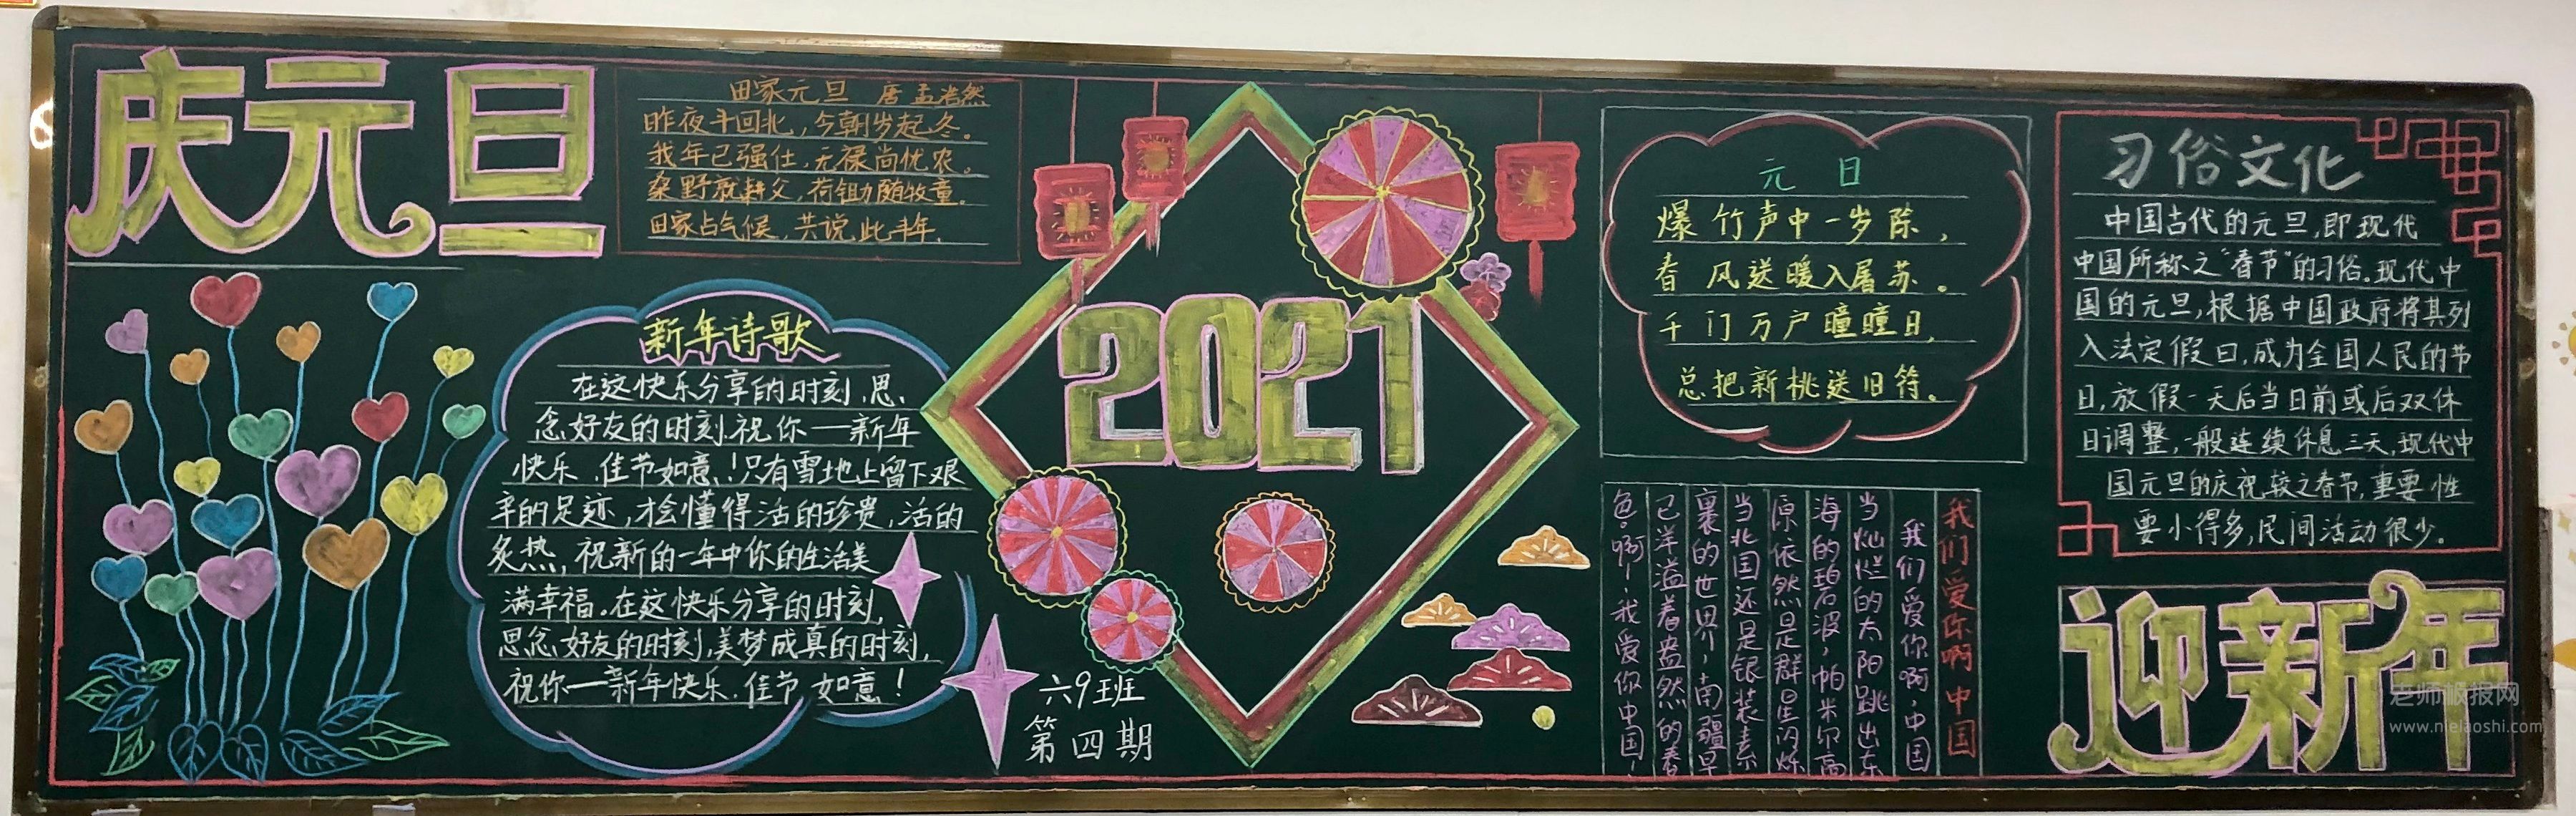 庆元旦
田家元旦 唐孟浩然
昨夜斗回北，今朝岁起冬。
我年已强仕，无禄尚忧农。
桑野就耕父，荷锄随牧童。
田家占气候，共说此丰年。
新年诗歌
在这快乐分享的时刻，思
念好友的时刻，祝你——新年
快乐，佳节如意！只有雪地上留下艰
辛的足迹，才会懂得活的珍贵，活的
炙热，祝新的一年中你的生活美
满幸福。在这快乐分享的时刻，
思念好友的时刻，美梦成真的时刻，
祝你——新年快乐，佳节如意！
2021
六9班
第四期
元日
爆竹声中一岁除，
春风送暖入屠苏。
千门万户曈曈日，
总把新桃送旧符。
我们爱你啊中国
我们爱你啊，中国
当灿烂的太阳跳出东
海的碧波，帕米尔高
原依然是群星闪烁
当北国还是银装素
裹的世界，南疆早
已洋溢着盎然的春
色。啊！我爱你中国！
习俗文化
中国古代的元旦，即现代
中国所称之“春节”的习俗。现代中
国的元旦，根据中国政府将其列
入法定假日，成为全国人民的节
日，放假一天后当日前或后双休
日调整，一般连续休息三天，现代中
国元旦的庆祝较之春节，重要性
要小得多，民间活动很少。
迎新年
老师板报网
www.nielaoshi.com